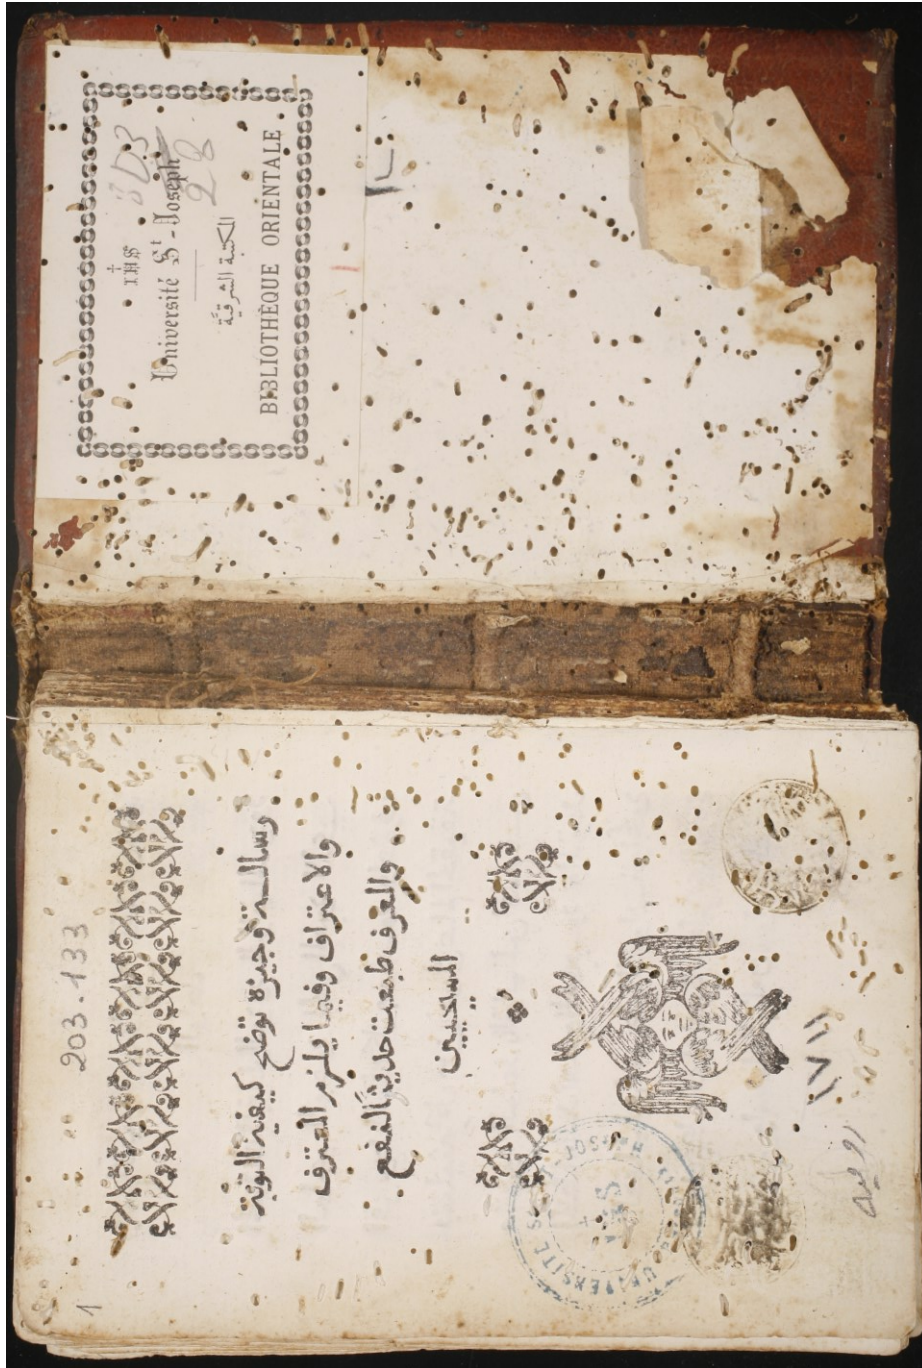 IHS
Université St-Joseph
28
المكتبة الشرقية
BIBLIOTHÈQUE ORIENTALE
903-133
رسالــة وجيزة توضح كيفية التوبة
والاعتراف وفيما يلزم المعترف
والمعرف طبعت حديثاً لنفع
المسيحيين
١٧١١
1